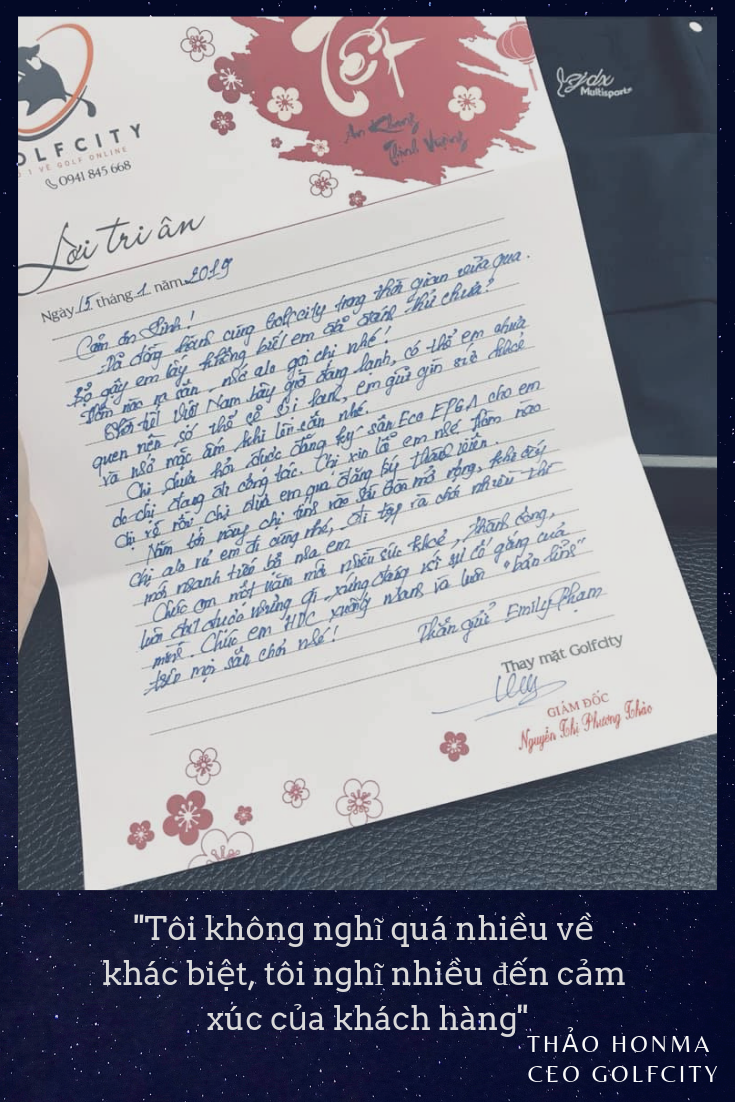 Tết
An Khang
Thịnh Vượng
Jgdx
Multisports
OLFCITY
1 VỀ GOLF ONLINE
0941 845 668
Lời tri ân
Ngày 15 tháng 1 năm 2019
Cảm ơn Linh!
Đã đồng hành cùng Golfcity trong thời gian vừa qua.
Bộ gậy em lấy không biết em đã đánh thử chưa?
Hôm nào ra sân nhớ alo gọi chị nhé!
Thời tiết Việt Nam bây giờ đang lạnh, có thể em chưa
quen nên cơ thể sẽ bị lạnh, em giữ gìn sức khoẻ
và nhớ mặc ấm khi lên sân nhé.
Chị chưa hỏi được đăng ký sân Eco EPGA cho em
do chị đang đi công tác. Chị xin lỗi em nhé, hôm nào
chị về rồi chị đưa em qua đăng ký thành viên.
Năm tới này chị tính vào sâu hơn mở rộng, khi đấy
chị alo rủ em đi cùng nhé, đi tập và chơi nhiều thì
mới nhanh tiến bộ nữa em
Chúc em một năm mới nhiều sức khoẻ, thành công,
luôn đạt được những gì xứng đáng với sự cố gắng của
mình. Chúc em HDC xuống nhanh và luôn "bản lĩnh"
trên mọi sân chơi nhé!
Thân gửi Emily Phạm
Thay mặt Golfcity
GIÁM ĐỐC
Nguyễn Thị Phương Thảo
"Tôi không nghĩ quá nhiều về
khác biệt, tôi nghĩ nhiều đến cảm
xúc của khách hàng"
THẢO HONMA
CEO GOLFCITY